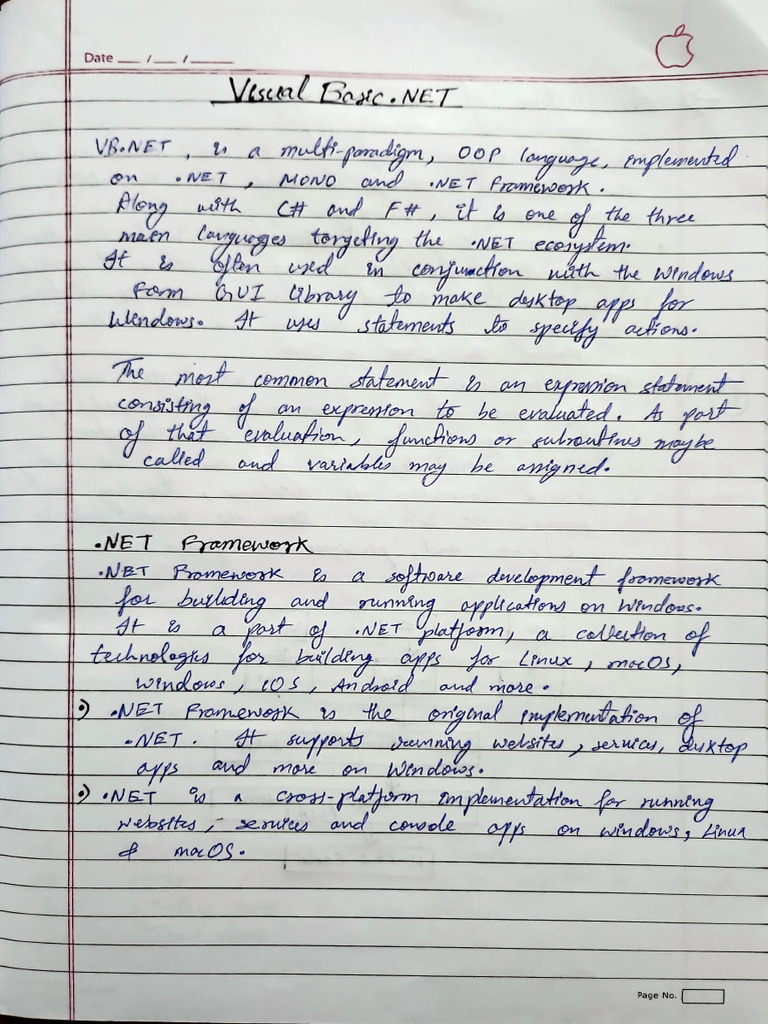 Date __ / __ / ____
Visual Basic.NET
VB.NET, is a multi-paradigm, OOP language, implemented
on .NET, MONO and .NET Framework.
Along with C# and F#, it is one of the three
main languages targeting the .NET ecosystem.
It is often used in conjunction with the Windows
Form GUI Library to make desktop apps for
Windows. It uses statements to specify actions.
The most common statement is an expression statement
consisting of an expression to be evaluated. As part
of that evaluation, functions or subroutines maybe
called and variables may be assigned.
.NET Framework
.NET Framework is a software development framework
for building and running applications on Windows.
It is a part of .NET platform, a collection of
technologies for building apps for Linux, macOS,
Windows, iOS, Android and more.
•) .NET Framework is the original implementation of
.NET. It supports running websites, services, desktop
apps and more on Windows.
•) .NET is a cross-platform implementation for running
websites, services and console apps on windows, Linux
& macOS.
Page No.